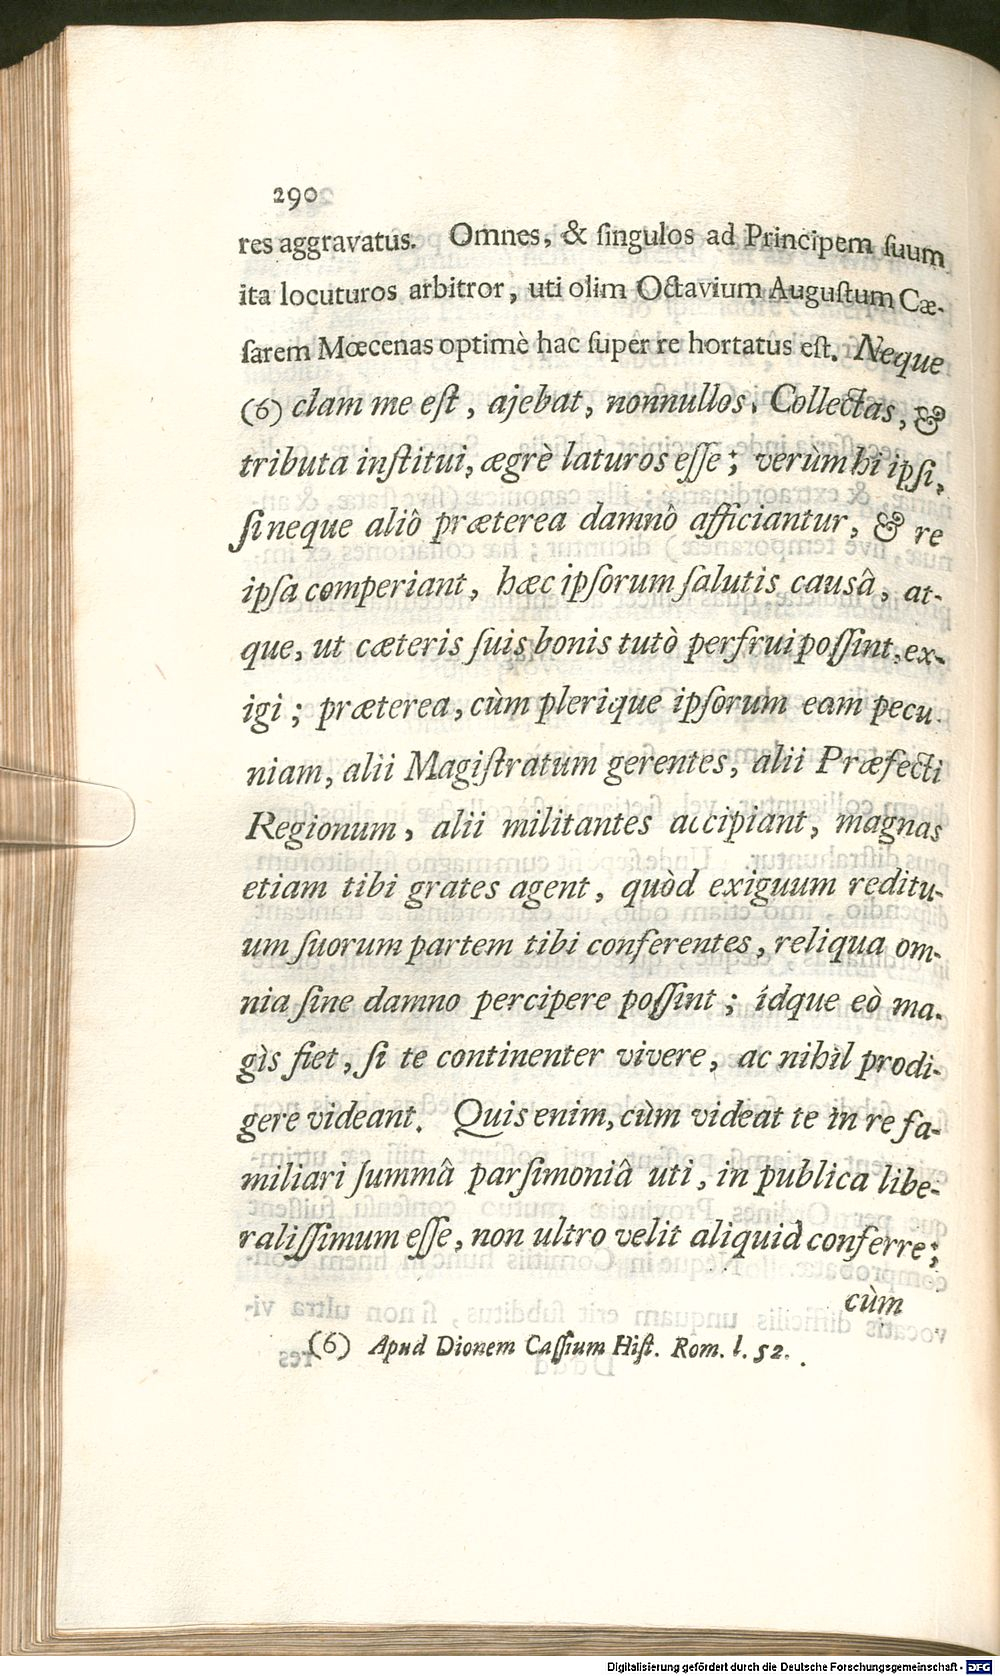 290
res aggravatus. Omnes, & ſingulos ad Principem ſuum
ita locuturos arbitror, uti olim Octavium Auguſtum Cæ-
ſarem Mœcenas optimè hac ſuper re hortatus eſt. Neque
(6) clam me eſt, ajebat, nonnullos, Collectas, &
tributa inſtitui, ægrè laturos eſſe; verùm hi ipſi,
ſi neque aliô præterea damnô afficiantur, & re
ipſa comperiant, hæc ipſorum ſalutis causâ, at-
que, ut cæteris ſuis bonis tutò perfrui poſſint, ex-
igi; præterea, cùm plerique ipſorum eam pecu-
niam, alii Magiſtratum gerentes, alii Præfecti
Regionum, alii militantes accipiant, magnas
etiam tibi grates agent, quòd exiguum reditu-
um ſuorum partem tibi conferentes, reliqua om-
nia ſine damno percipere poſſint; idque eò ma-
gìs fiet, ſi te continenter vivere, ac nihil prodi-
gere videant. Quis enim, cùm videat te in re fa-
miliari ſummâ parſimoniâ uti, in publica libe-
raliſſimum eſſe, non ultro velit aliquid conferre;
cùm
(6) Apud Dionem Caſſium Hiſt. Rom. l. 52.
Digitalisierung gefördert durch die Deutsche Forschungsgemeinschaft - DFG